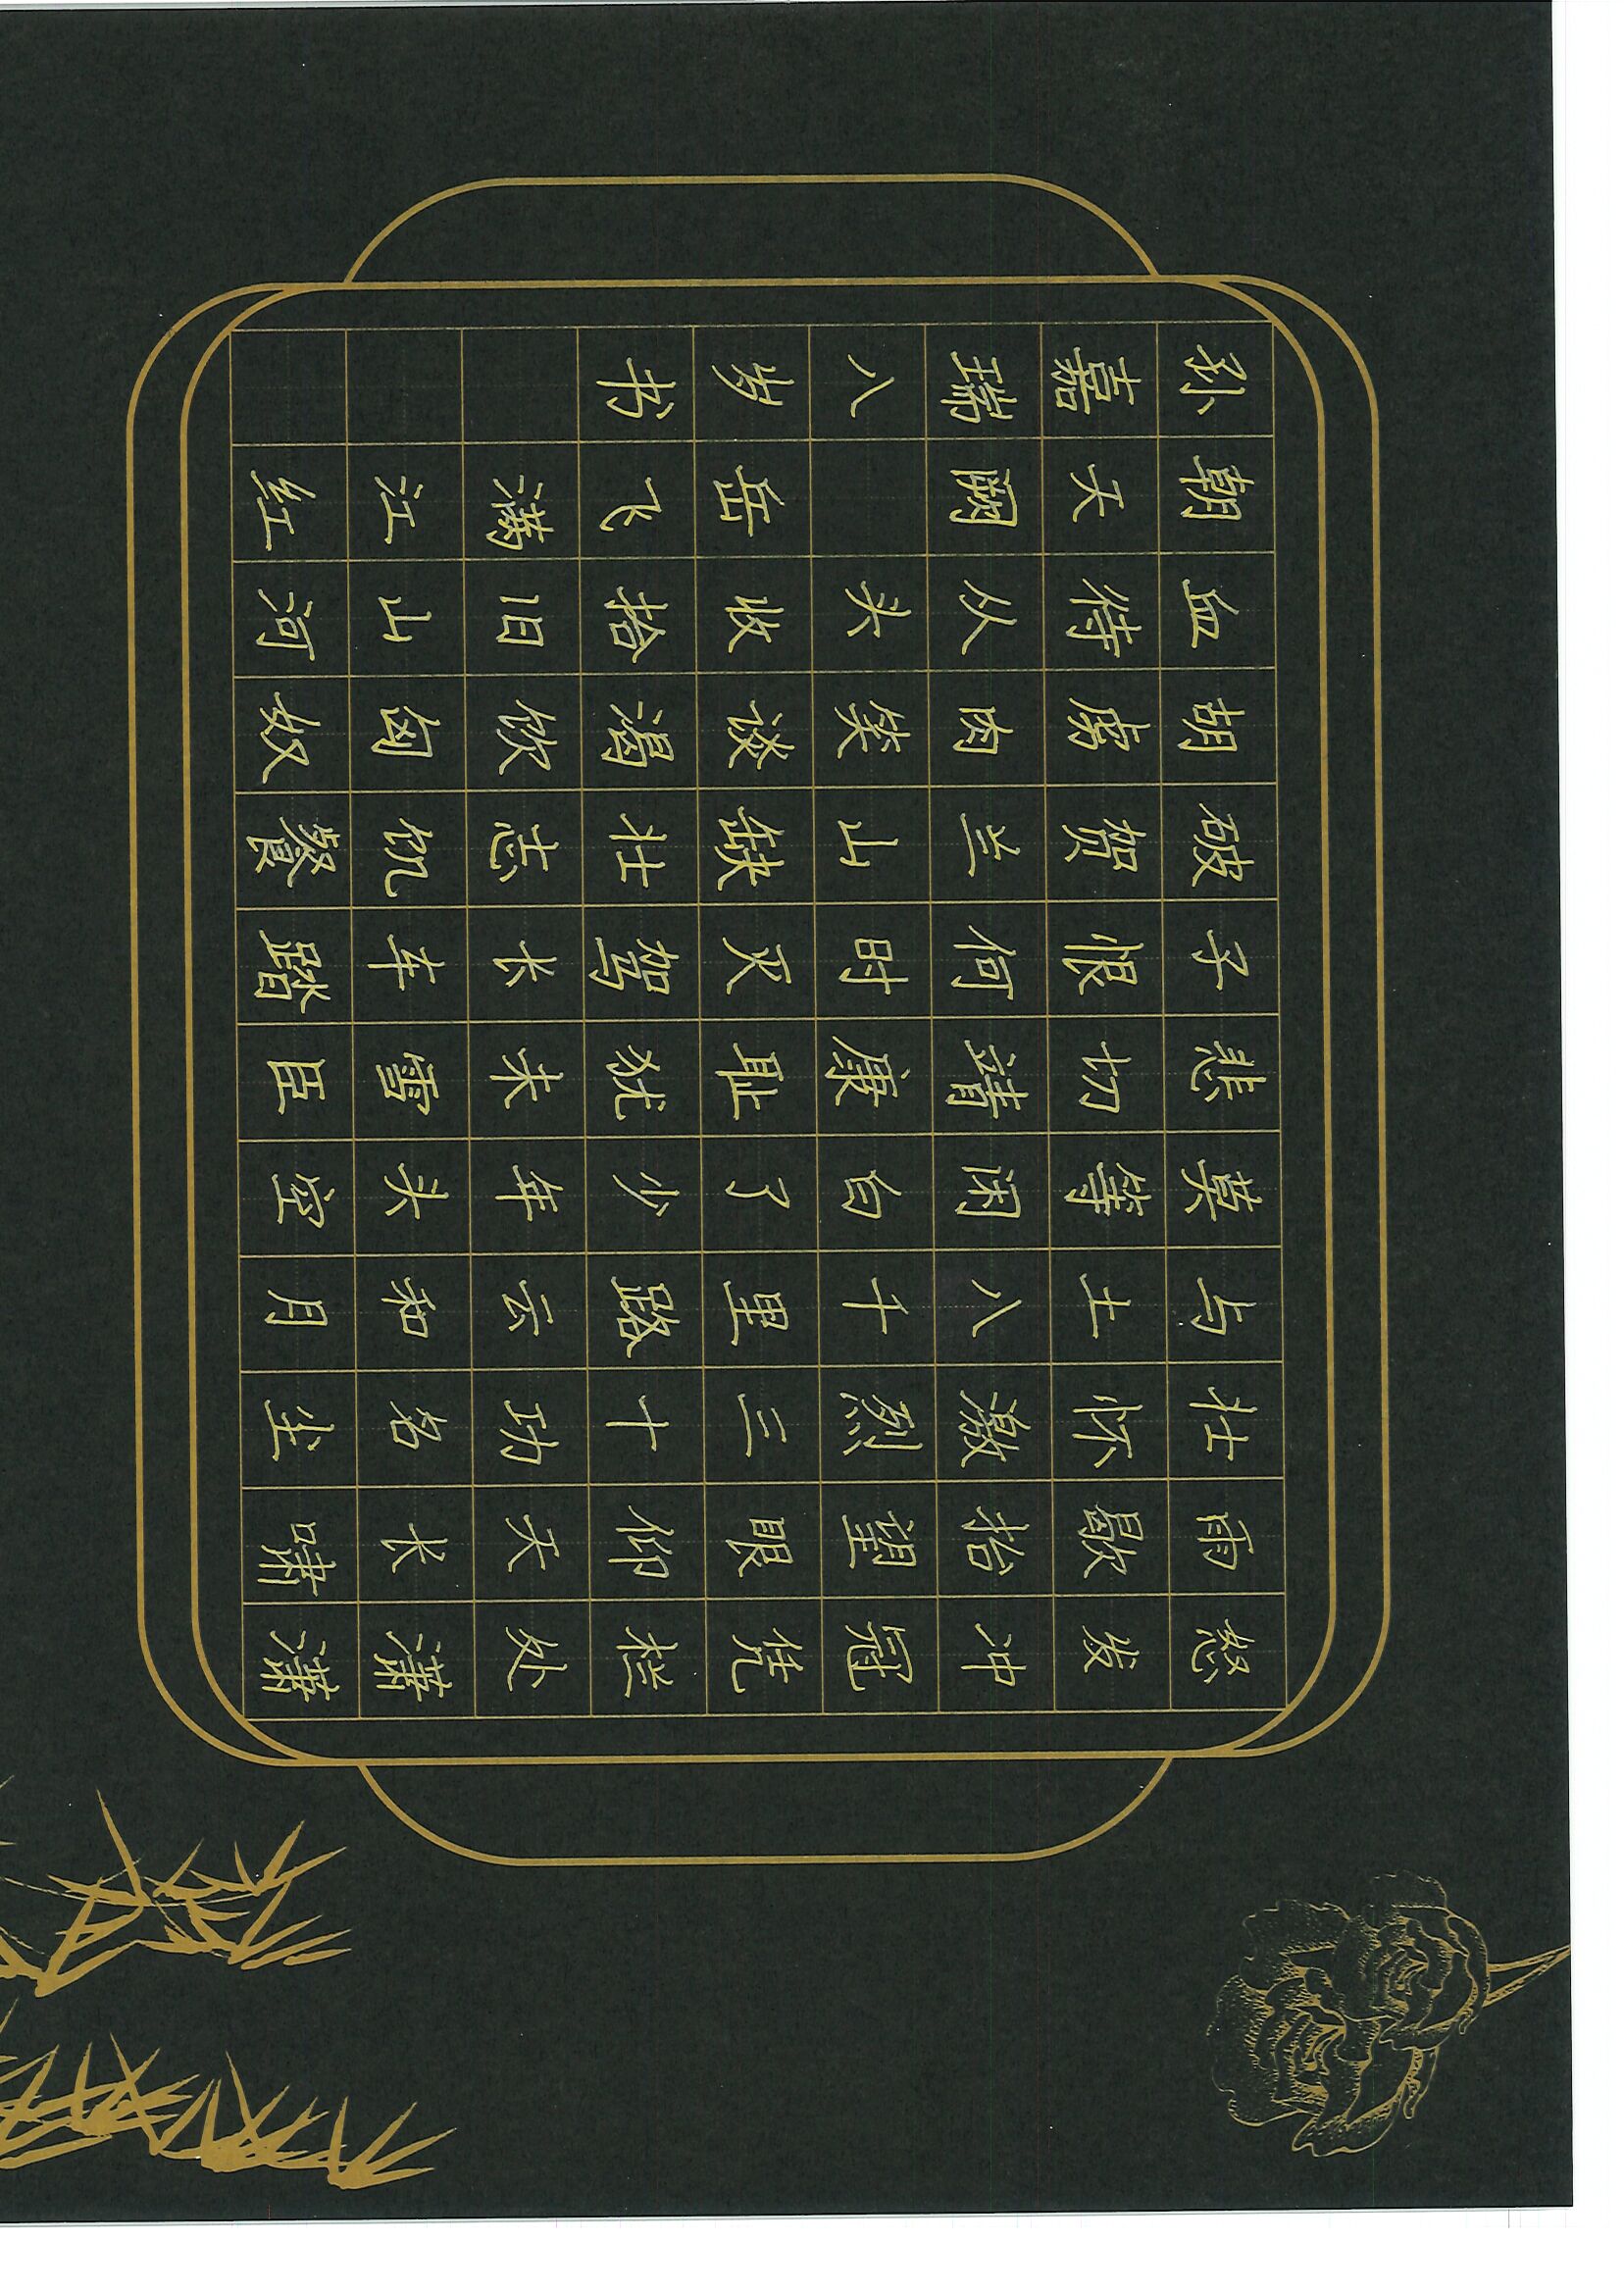 怒发冲冠凭栏处潇潇
雨歇抬望眼仰天长啸
壮怀激烈三十功名尘
与土八千里路云和月
莫等闲白了少年头空
悲切靖康耻犹未雪臣
子恨何时灭驾长车踏
破贺兰山缺壮志饥餐
胡虏肉笑谈渴饮匈奴
血待从头收拾旧山河
朝天阙 岳飞满江红
孙嘉瑞八岁书